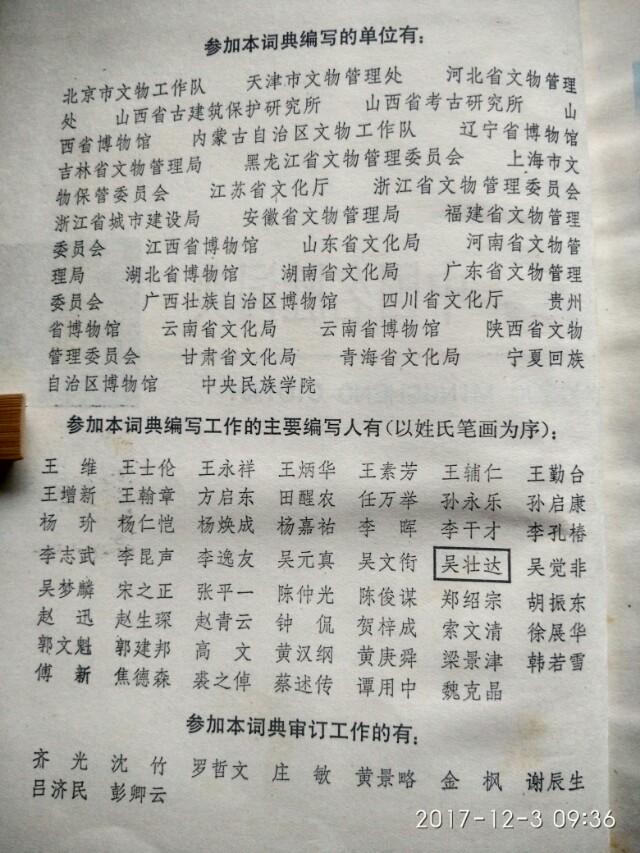 参加本词典编写的单位有：
北京市文物工作队　天津市文物管理处　河北省文物管理
处　山西省古建筑保护研究所　山西省考古研究所　山
西省博物馆　内蒙古自治区文物工作队　辽宁省博物馆
吉林省文物管理局　黑龙江省文物管理委员会　上海市文
物保管委员会　江苏省文化厅　浙江省文物管理委员会
浙江省城市建设局　安徽省文物管理局　福建省文物管理
委员会　江西省博物馆　山东省文化局　河南省文物管
理局　湖北省博物馆　湖南省文化局　广东省文物管理
委员会　广西壮族自治区博物馆　四川省文化厅　贵州
省博物馆　云南省文化局　云南省博物馆　陕西省文物
管理委员会　甘肃省文化局　青海省文化局　宁夏回族
自治区博物馆　中央民族学院
参加本词典编写工作的主要编写人有（以姓氏笔画为序）：
王　维　王士伦　王永祥　王炳华　王素芳　王辅仁　王勤台
王增新　王翰章　方启东　田醒农　任万举　孙永乐　孙启康
杨　玠　杨仁恺　杨焕成　杨嘉祐　李　晖　李干才　李孔椿
李志武　李昆声　李逸友　吴元真　吴文衔　吴壮达　吴觉非
吴梦麟　宋之正　张平一　陈仲光　陈俊谋　郑绍宗　胡振东
赵　迅　赵生琛　赵青云　钟　侃　贺梓成　索文清　徐展华
郭文魁　郭建邦　高　文　黄汉纲　黄庚舜　梁景津　韩若雪
傅　新　焦德森　裘之倬　蔡述传　谭用中　魏克晶
参加本词典审订工作的有：
齐　光　沈　竹　罗哲文　庄　敏　黄景略　金　枫　谢辰生
吕济民　彭卿云
2017-12-3 09:36